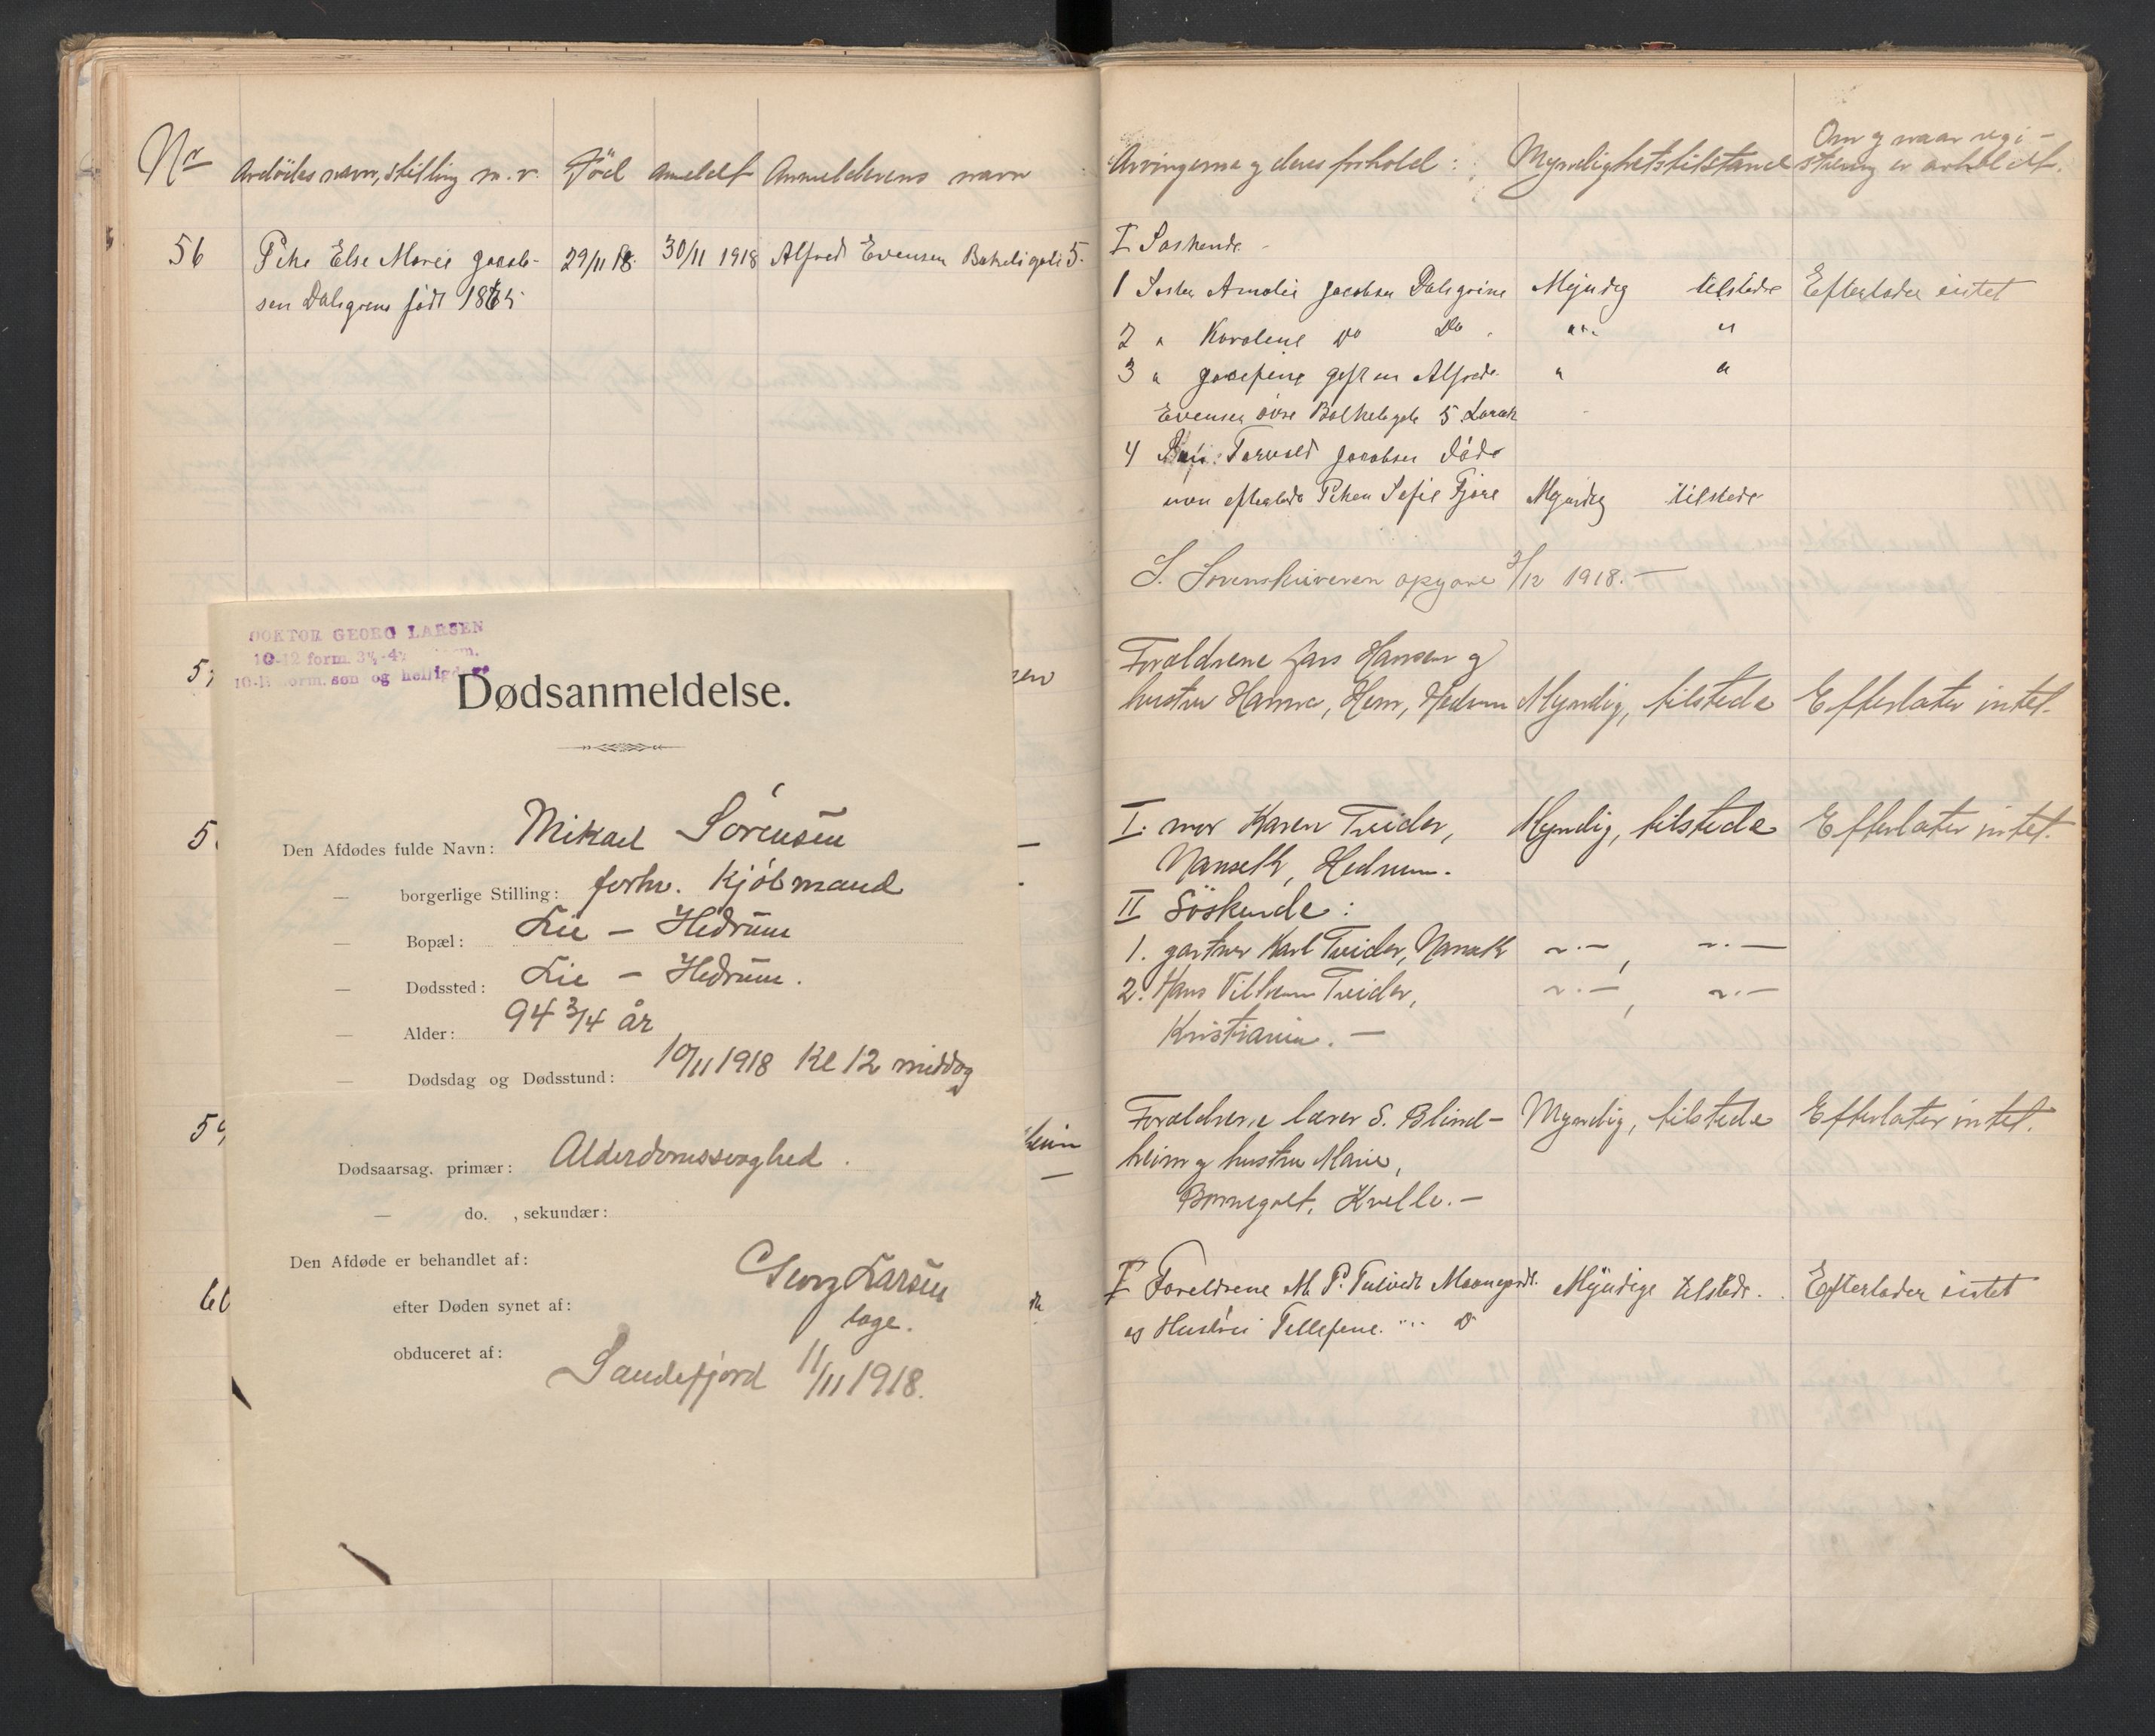 Nr Avdödes navn, stilling m. v. Död anmeldt Anmelderens navn
56 Pike Else Marie Jacob- 29/11 18. 30/11 1918 Alfred Evensen 5.
sen født
DOKTOR GEORG LARSEN
10-12 form.
form. søn og helligdage
Dødsanmeldelse.
Den Afdødes fulde Navn: Mikael Sörensen
— borgerlige Stilling: forhv. Kjöbmand
— Bopæl: Lie — Hedrum
— Dødssted: Lie — Hedrum.
— Alder: 94 3/4 år
— Dødsdag og Dødsstund: 10/11 1918 Kl 12 middag
Dødsaarsag. primær: Alderdomssvaghed.
— do. , sekundær:
Den Afdøde er behandlet af:
Georg Larsen
efter Døden synet af:
læge.
obduceret af:
Sandefjord 11/11 1918.
Arvingerne og deres forhold: Myndighetstilstand Om og naar regi-
strering er avholdt.
I Søskende
1 Søster Amalie Jacobsen Myndig tilstede Efterlader intet
2 " Karoline Do Do " "
3 " Josefine gift m Alfred " "
Evensen øvre 5 Larvik
4 Torvald Jacobsen død
men efterlader Piken Sofie Myndig tilstede
S. Sorenskriveren opgave 3/12 1918. —
Forældrene Lars Hansen og
hustru Hanna, Hem, Hedrum Myndig, tilstede Efterlater intet.
I. mor Karen Tveider, Myndig, tilstede Efterlater intet.
Nanseth, Hedrum.
II Söskende:
1. gartner Karl Tveider, Nanseth —"—, —"—
2. Hans Vilhelm Tveider, —"—, —"—
Kristiania. —
Forældrene lærer S. Blind- Myndig, tilstede Efterlater intet.
heim og hustru Marie,
Kvelle. —
I Foreldrene M. P. Myndige tilstede. Efterlader intet
og Hustru